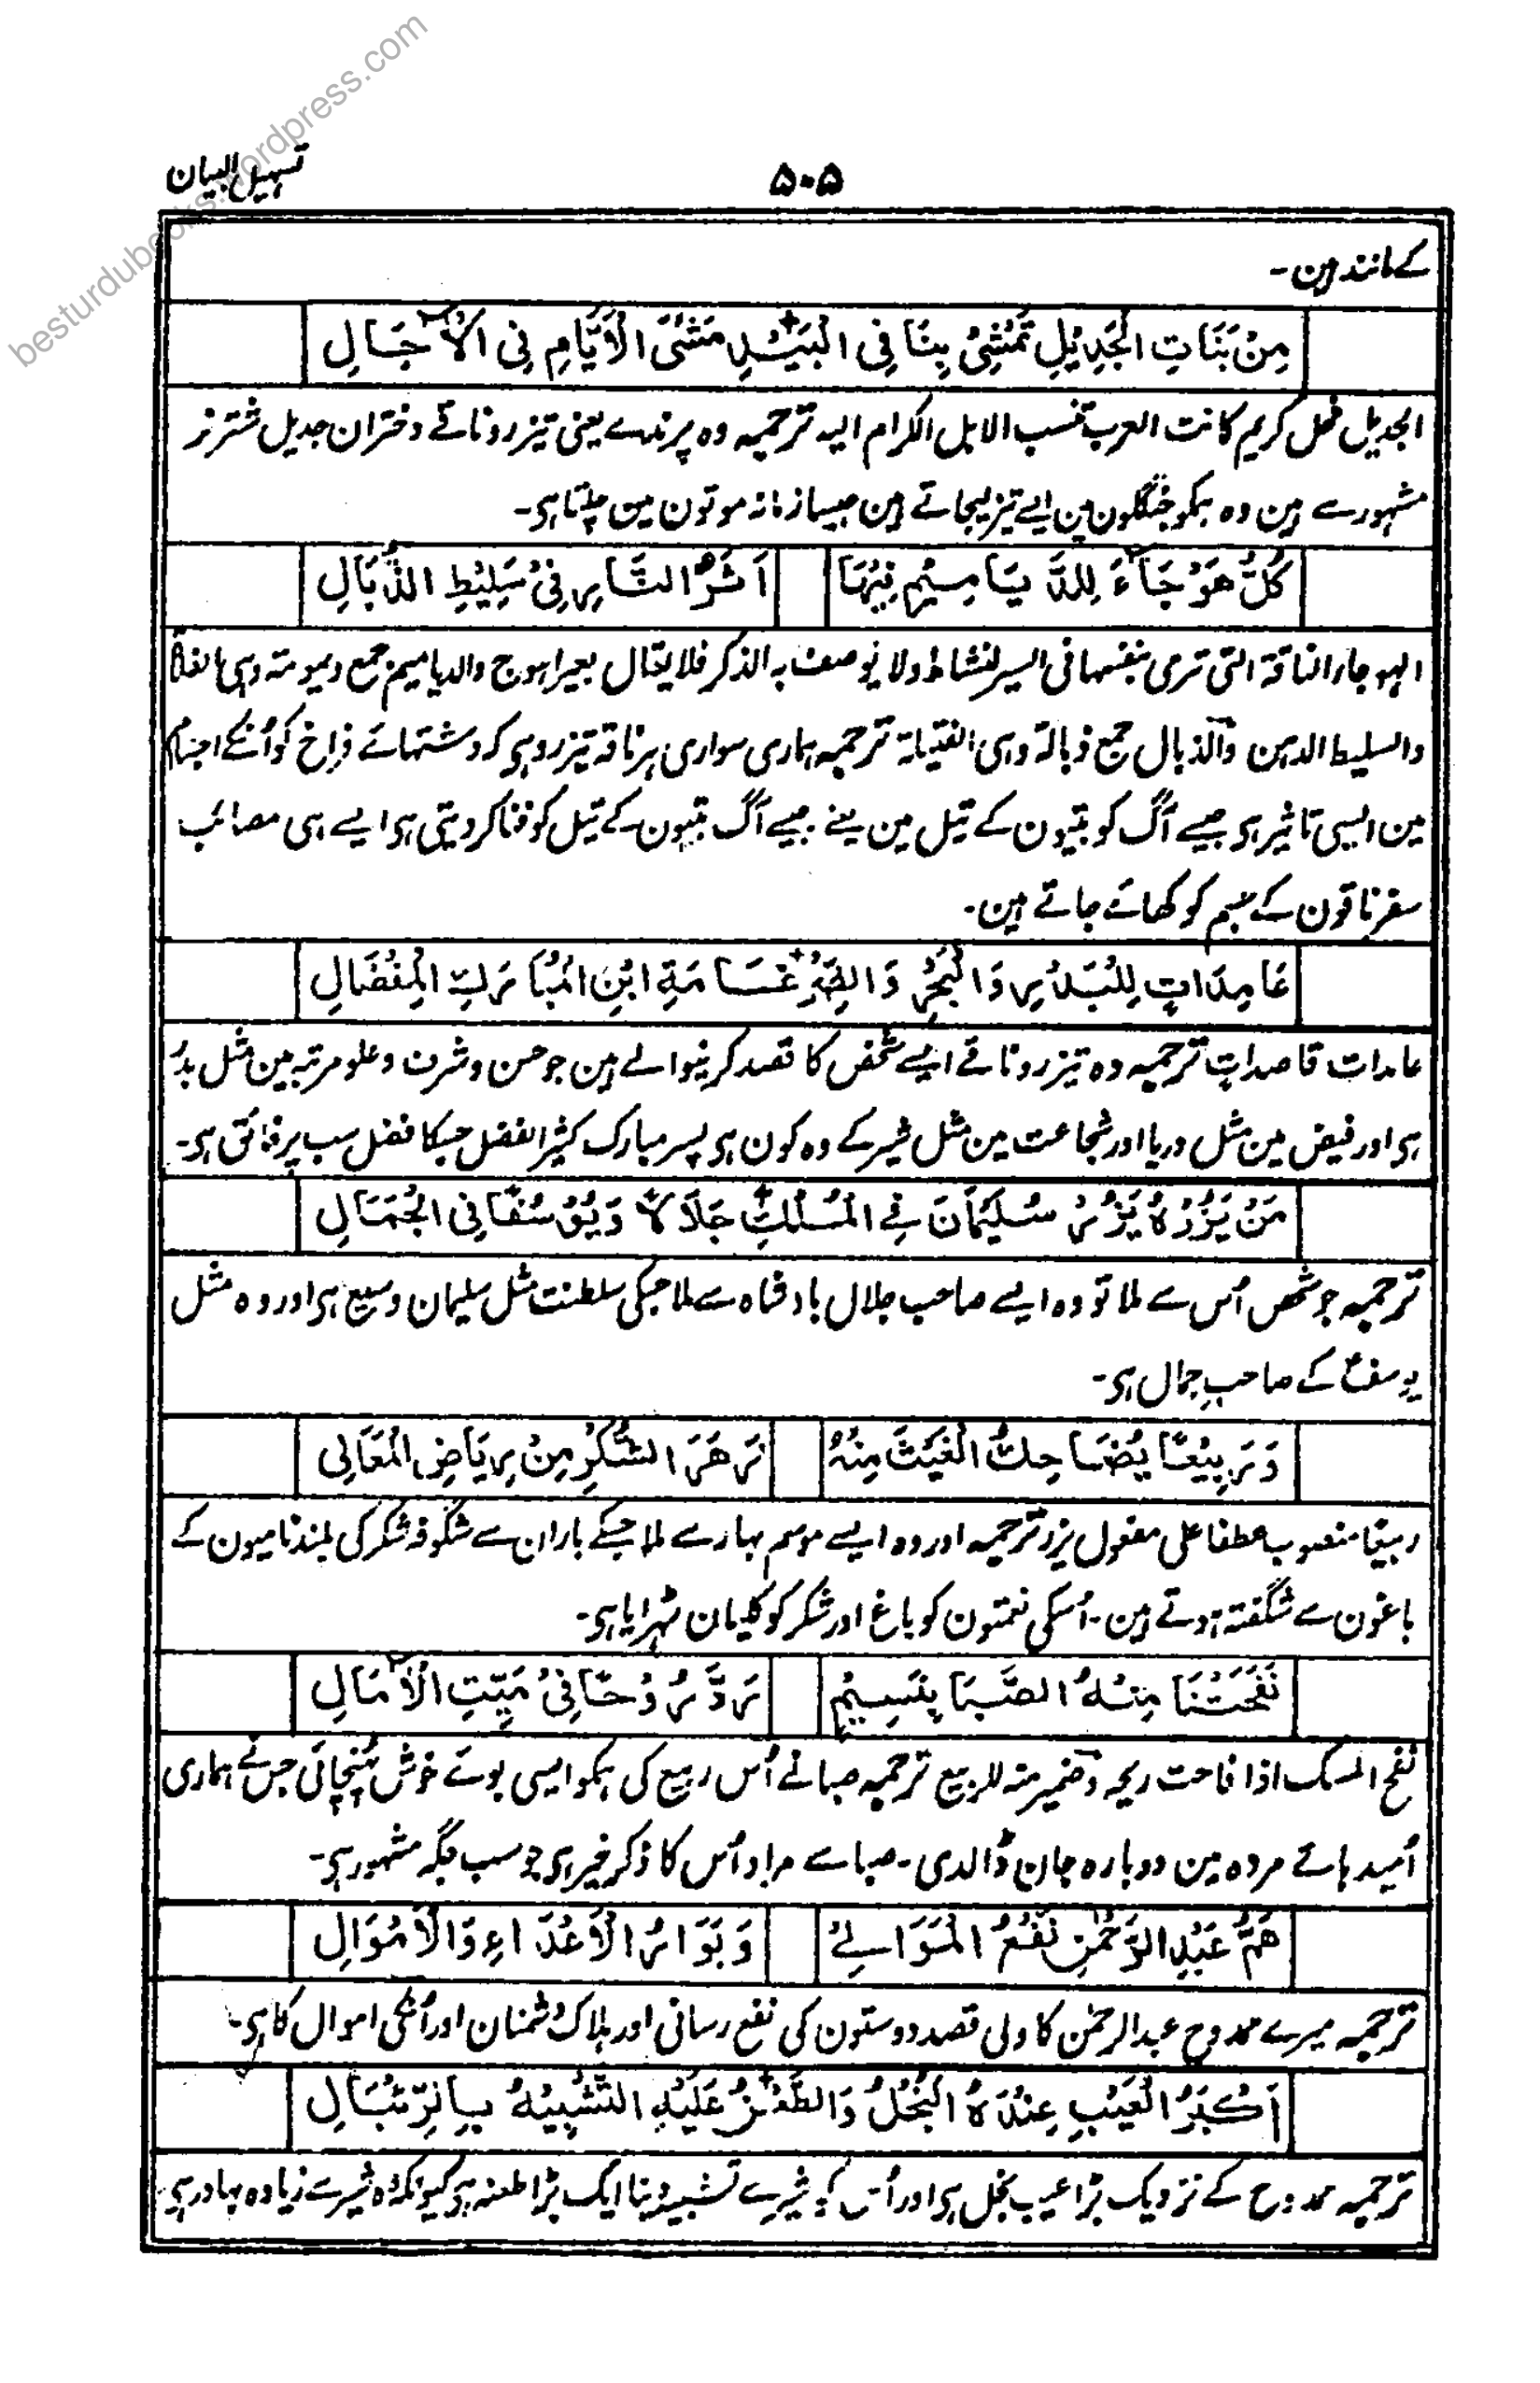 besturdubooks.wordpress.com
تسہیل البیان
۵۰۵
کے مانند ہین۔
مِنْ بَنَاتِ الْجَدِيْلِ تَمْشِیْ بِنَا فِی الْبَيْدِ مَشْیَ الْاَيَّامِ فِی الْاٰجَالِ
الجدیل فحل کریم کانت العرب تنسب الابل الکرام الیہ ترجمہ وہ پرندے یعنی تیزرو ناقے دختران جدیل شتر نر
مشہور سے ہین وہ ہمکو جنگلون مین ایسے تیز لیجاتے ہین جیسا زمانہ موتون مین چلتا ہی۔
كُلُّ هَوْجَآءَ لِلدَّيَامِيْمِ فِيْهَا
اَثَرُ النَّارِ فِیْ سَلِيْطِ الذُّبَالِ
الہوجاء الناقۃ التی ترمی بنفسہا فی السیر لنشاط ولا یوصف بہ الذکر فلا یقال بعیر اہوج والدیامیم جمع دیمومتہ وہی الفلاۃ
والسلیط الدہن والذبال جمع ذبالۃ وہی الفتیلۃ ترجمہ ہماری سواری ہر ناقہ تیزرو ہی کہ دشتہائے فراخ کو اُنکے اجسام
مین ایسی تاثیر ہی جیسے آگ کو بتیون کے تیل مین یعنے جیسے آگ بتیون کے تیل کو فنا کر دیتی ہی ایسے ہی مصائب
سفر ناقون کے جسم کو کھائے جاتے ہین۔
عَامِدَاتٍ لِلْبَدْرِ وَالْبَحْرِ وَالضِّرْغَامَةِ ابْنِ الْمُبَارَكِ الْمِفْضَالِ
عامدات قاصدات ترجمہ وہ تیزرو ناقے ایسے شخص کا قصد کرنیوالے ہین جو حسن و شرف و علو مرتبہ مین مثل بدر
ہی اور فیض مین مثل دریا اور شجاعت مین مثل شیر کے وہ کون ہی پسر مبارک کثیر الفضل جسکا فضل سب پر فائق ہی۔
مَنْ يَزُرْهُ يَزُرْ سُلَيْمَانَ فِے الْمُلْكِ جَلَالًا وَيُوْسُفًا فِی الْجَمَالِ
ترجمہ جو شخص اُس سے ملا تو وہ ایسے صاحب جلال بادشاہ سے ملا جسکی سلطنت مثل سلیمان وسیع ہی اور وہ مثل
یوسفؑ کے صاحب جمال ہی۔
وَرَبِيْعًا يُضَاحِكُ الْغَيْثَ مِنْهُ
زَهَرَ الشُّكْرِ مِنْ رِيَاضِ الْمَعَالِی
ربیعًا منصوب عطفا علی مفعول یزر ترجمہ اور وہ ایسے موسم بہار سے ملا جسکے باران سے شگوفہ شکر کی بلند نامیون کے
باغون سے شگفتہ ہوتے ہین۔ اُسکی نعمتون کو باغ اور شکر کو کلیان ٹہرایا ہی۔
نَفَحَتْنَا مِنْهُ الصَّبَا بِنَسِيْمٍ
رَدَّ رُوْحًا فِیْ مَيِّتِ الْاٰمَالِ
نفح المسک اذا فاحت ریحہ وضمیر منہ للربیع ترجمہ صبا نے اُس ربیع کی ہمکو ایسی بوئے خوش پہنچائی جس نے ہماری
اُمید ہائے مردہ مین دوبارہ جان ڈالدی۔ صبا سے مراد اُس کا ذکر خیر ہی جو سب جگہ مشہور ہی۔
هَمُّ عَبْدِ الرَّحْمٰنِ نَفْعُ الْمَوَالِیْ
وَبَوَارُ الْاَعْدَاءِ وَالْاَمْوَالِ
ترجمہ میرے ممدوح عبدالرحمٰن کا ولی قصد دوستون کی نفع رسانی اور ہلاک دشمنان اور اُنکی اموال کا ہی۔
اَكْبَرُ الْعَيْبِ عِنْدَهُ الْبُخْلُ وَالطَّعْنُ عَلَيْهِ التَّشْبِيْهُ بِالرِّئْبَالِ
ترجمہ ممدوح کے نزدیک بڑا عیب بخل ہی اور اُس کو شیر سے تشبیہ دینا ایک بڑا طعنہ ہی کیونکہ وہ شیر سے زیادہ بہادر ہی